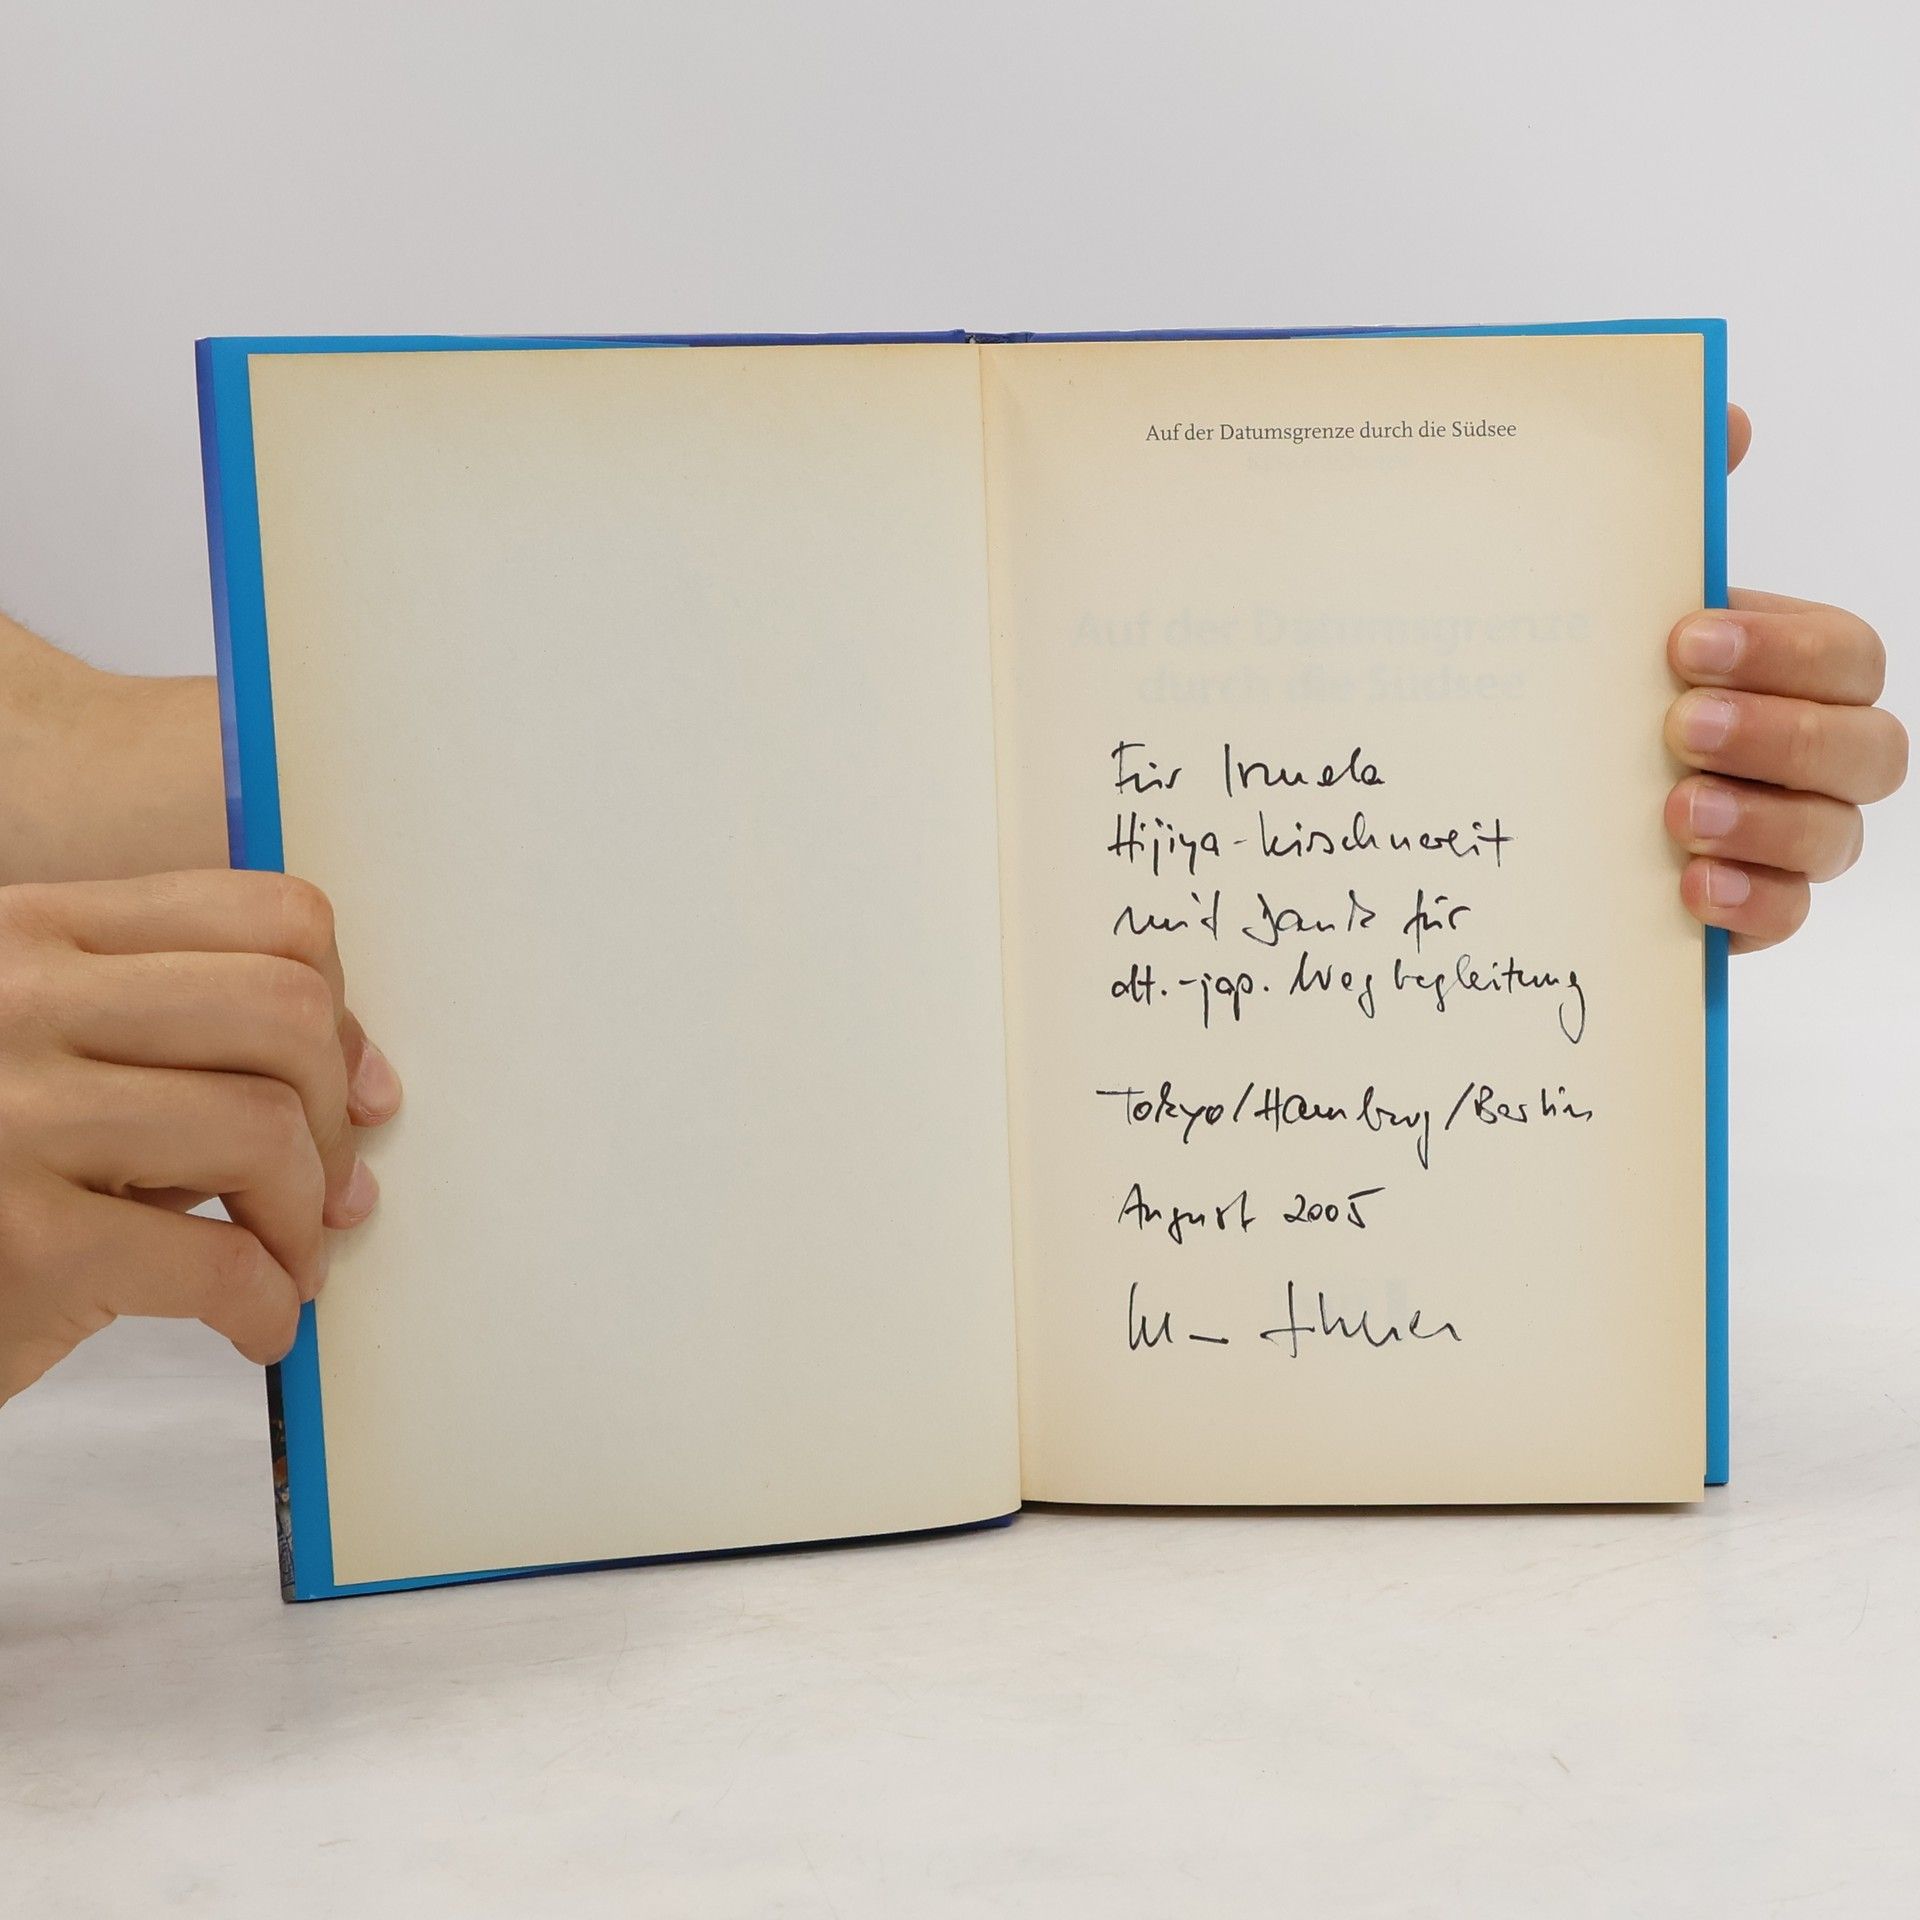 Auf der Datumsgrenze durch die Südsee
Auf der Datumsgrenze
durch die Südsee
Für Irmela
Hijiya-Kirschnereit
mit Dank für
dt.-jap. Wegbegleitung
Tokyo/Hamburg/Berlin
August 2005